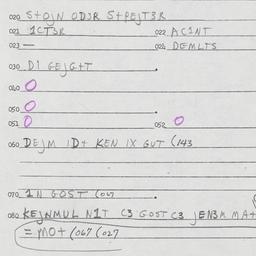 020 S+OJN ODJR S+PEJT3R
021 1CT3R 022 AC1NT
023 — 024 DEMLTS
030 D1 GEJG+T
040 0
050 0
051 0 052 0
060 DEJM 1D+ KEN 1X GUT (143
070 1N GOST (067
080 KEJNMUL N1T C3 GOST C3 JEN3M MA+
= MO+ (067 (027